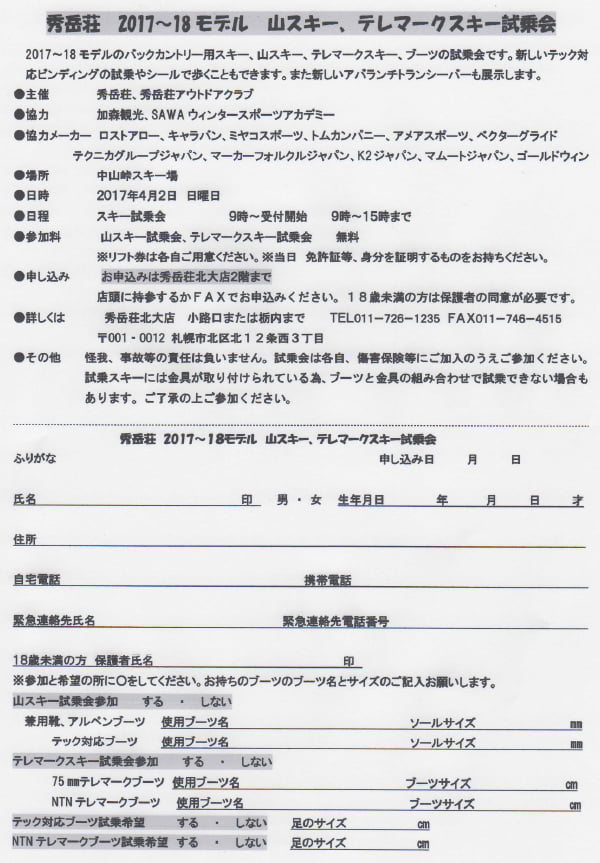 秀岳荘 2017～18モデル 山スキー、テレマークスキー試乗会
2017～18モデルのバックカントリー用スキー、山スキー、テレマークスキー、ブーツの試乗会です。新しいテック対
応ビンディングの試乗やシールで歩くこともできます。また新しいアバランチトランシーバーも展示します。
●主催 秀岳荘、秀岳荘アウトドアクラブ
●協力 加森観光、SAWAウィンタースポーツアカデミー
●協力メーカー ロストアロー、キャラバン、ミヤコスポーツ、トムカンパニー、アメアスポーツ、ベクターグライド
テクニカグループジャパン、マーカーフォルクルジャパン、K2ジャパン、マムートジャパン、ゴールドウィン
●場所 中山峠スキー場
●日時 2017年4月2日 日曜日
●日程 スキー試乗会 9時～受付開始 9時～15時まで
●参加料 山スキー試乗会、テレマークスキー試乗会 無料
※リフト券は各自ご用意ください。※当日 免許証等、身分を証明するものをお持ちください。
●申し込み お申込みは秀岳荘北大店2階まで
店頭に持参するかFAXでお申込みください。18歳未満の方は保護者の同意が必要です。
●詳しくは 秀岳荘北大店 小路口または栃内まで TEL011-726-1235 FAX011-746-4515
〒001-0012 札幌市北区北12条西3丁目
●その他 怪我、事故等の責任は負いません。試乗会は各自、傷害保険等にご加入のうえご参加ください。
試乗スキーには金具が取り付けられている為、ブーツと金具の組み合わせで試乗できない場合も
あります。ご了承の上ご参加ください。
秀岳荘 2017～18モデル 山スキー、テレマークスキー試乗会
ふりがな 申し込み日 月 日
氏名 印 男・女 生年月日 年 月 日 才
住所
自宅電話 携帯電話
緊急連絡先氏名 緊急連絡先電話番号
18歳未満の方 保護者氏名 印
※参加と希望の所に○をしてください。お持ちのブーツのブーツ名とサイズのご記入お願いします。
山スキー試乗会参加 する ・ しない
兼用靴、アルペンブーツ 使用ブーツ名 ソールサイズ ㎜
テック対応ブーツ 使用ブーツ名 ソールサイズ ㎜
テレマークスキー試乗会参加 する ・ しない
75㎜テレマークブーツ 使用ブーツ名 ブーツサイズ ㎝
NTNテレマークブーツ 使用ブーツ名 ブーツサイズ ㎝
テック対応ブーツ試乗希望 する ・ しない 足のサイズ ㎝
NTNテレマークブーツ試乗希望 する ・ しない 足のサイズ ㎝